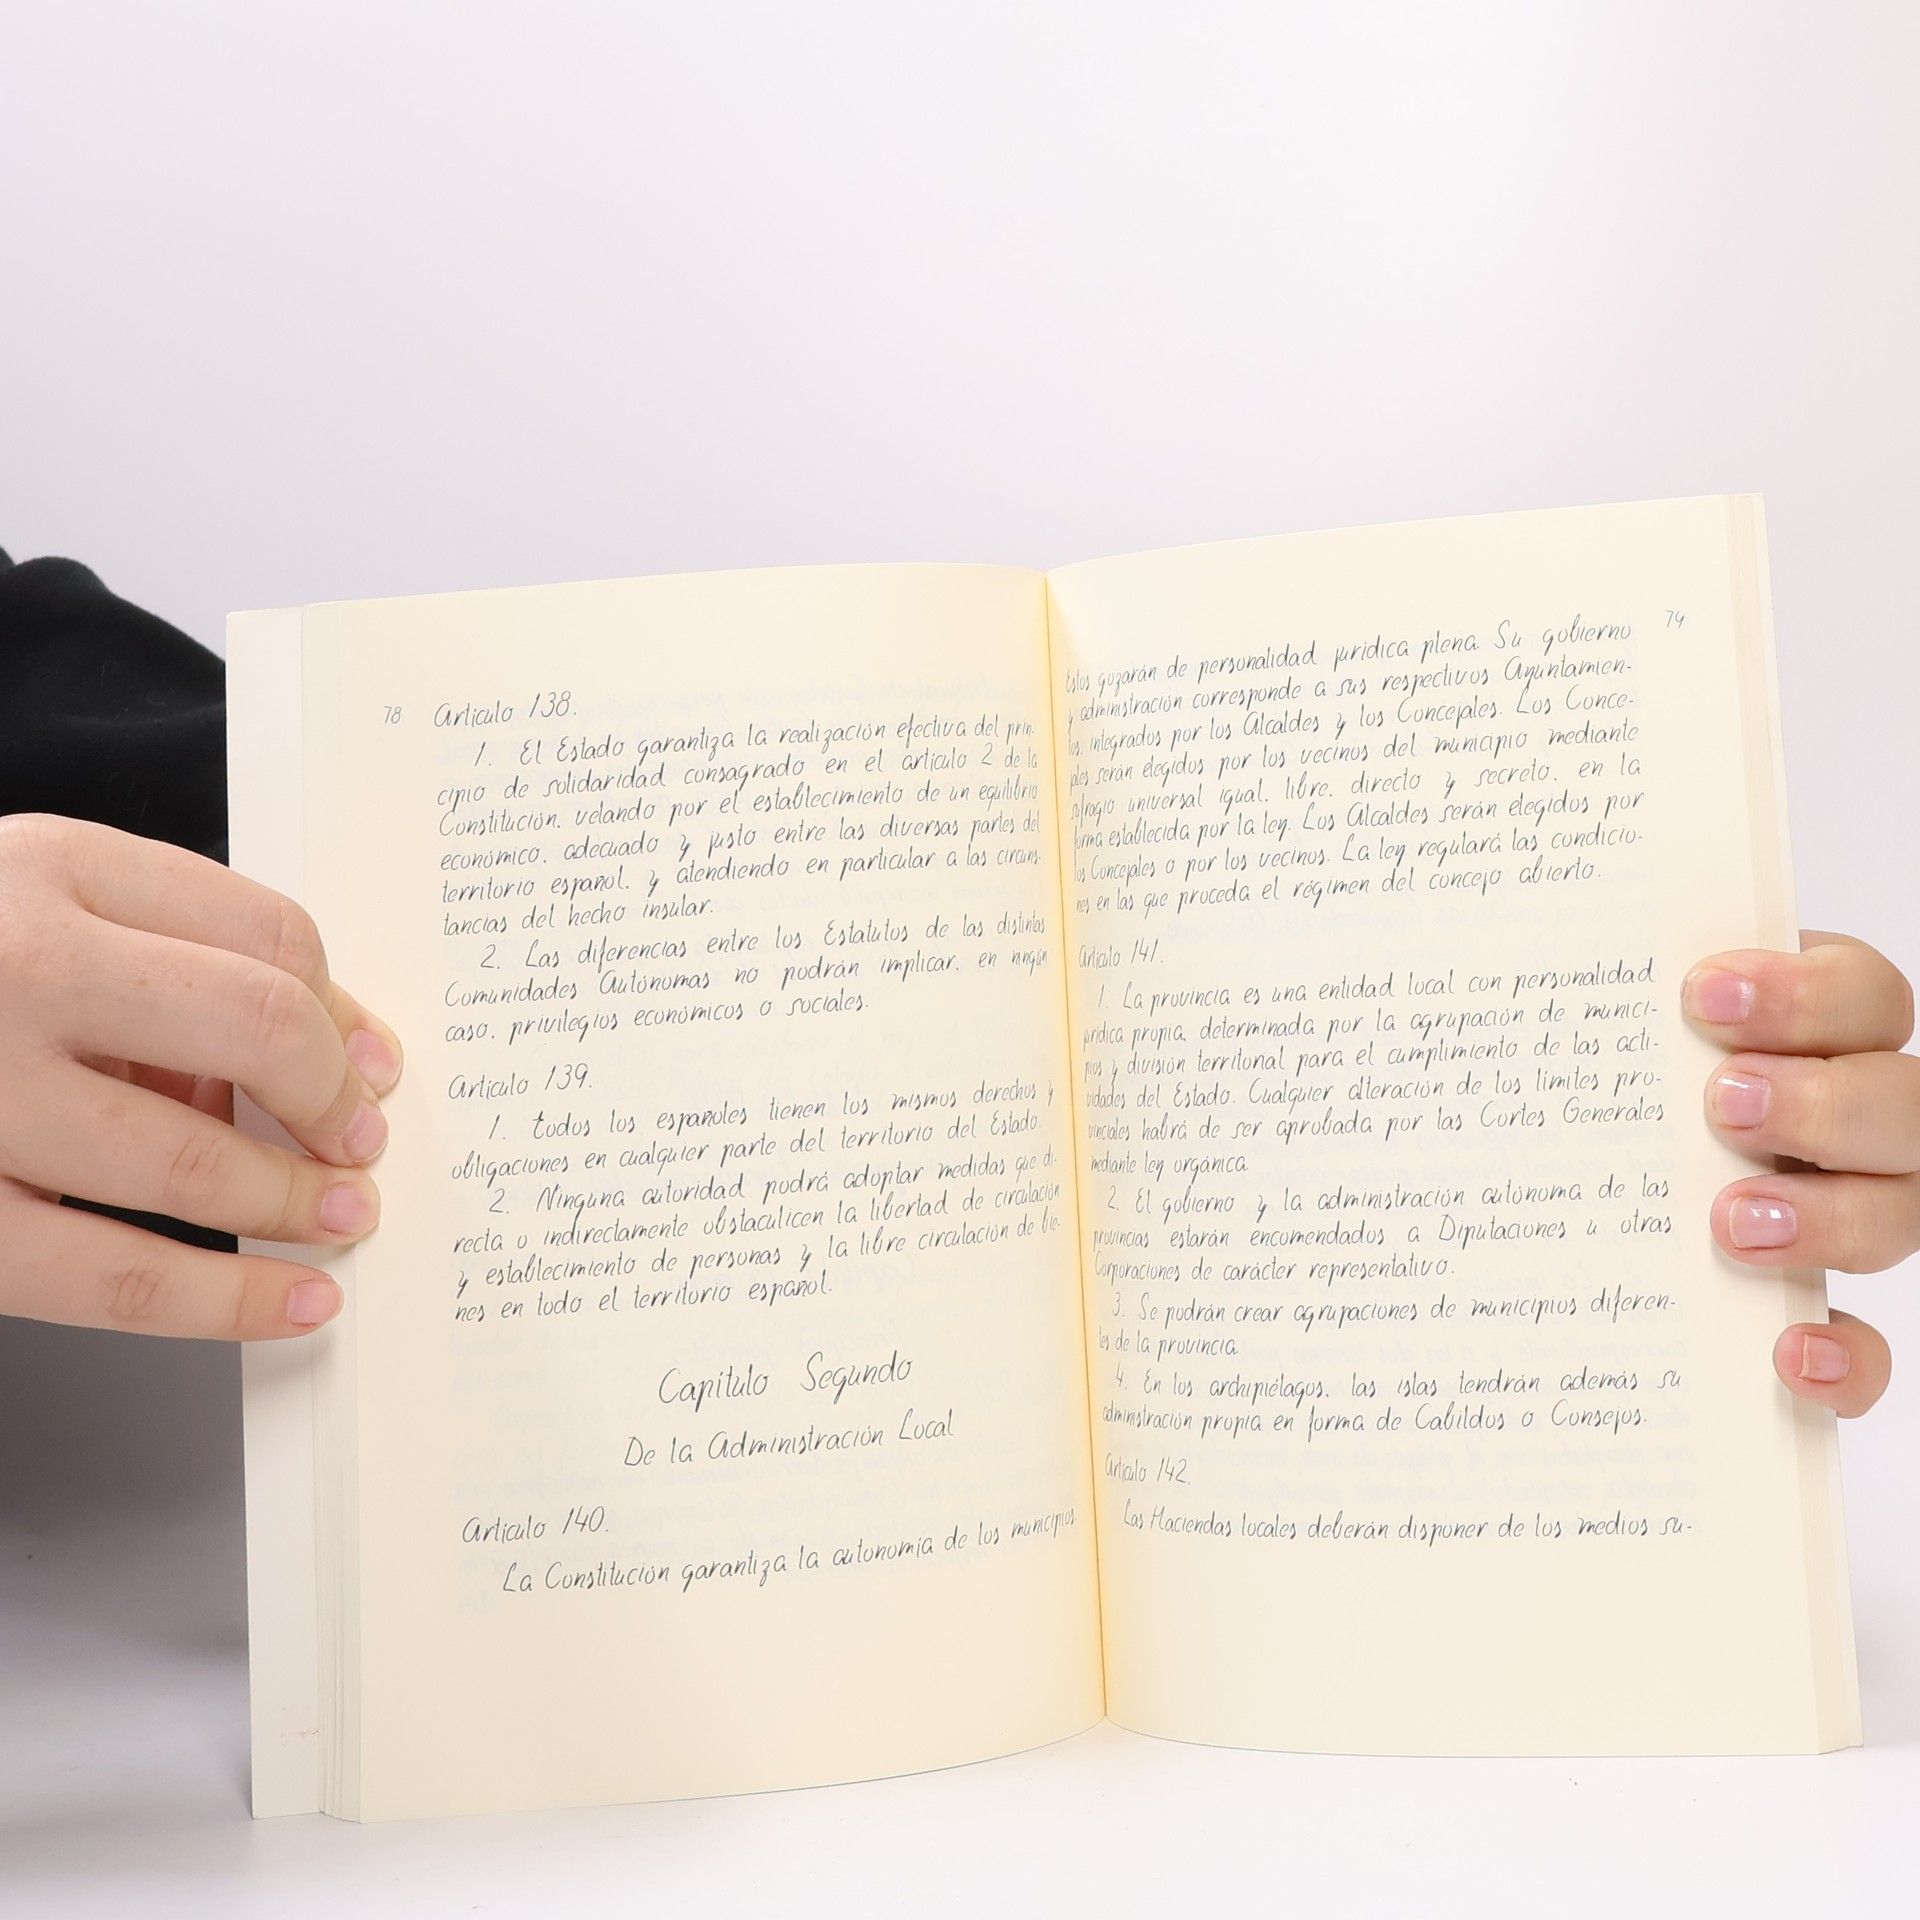 78
Artículo 138.
1. El Estado garantiza la realización efectiva del prin-
cipio de solidaridad consagrado en el artículo 2 de la
Constitución, velando por el establecimiento de un equilibrio
económico, adecuado y justo entre las diversas partes del
territorio español, y atendiendo en particular a las circuns-
tancias del hecho insular.
2. Las diferencias entre los Estatutos de las distintas
Comunidades Autónomas no podrán implicar, en ningún
caso, privilegios económicos o sociales.
Artículo 139.
1. Todos los españoles tienen los mismos derechos y
obligaciones en cualquier parte del territorio del Estado.
2. Ninguna autoridad podrá adoptar medidas que di-
recta o indirectamente obstaculicen la libertad de circulación
y establecimiento de personas y la libre circulación de bie-
nes en todo el territorio español.
Capítulo Segundo
De la Administración Local
Artículo 140.
La Constitución garantiza la autonomía de los municipios.
79
Estos gozarán de personalidad jurídica plena. Su gobierno
y administración corresponde a sus respectivos Ayuntamien-
tos, integrados por los Alcaldes y los Concejales. Los Conce-
jales serán elegidos por los vecinos del municipio mediante
sufragio universal igual, libre, directo y secreto, en la
forma establecida por la ley. Los Alcaldes serán elegidos por
los Concejales o por los vecinos. La ley regulará las condicio-
nes en las que proceda el régimen del concejo abierto.
Artículo 141.
1. La provincia es una entidad local con personalidad
jurídica propia, determinada por la agrupación de munici-
pios y división territorial para el cumplimiento de las acti-
vidades del Estado. Cualquier alteración de los límites pro-
vinciales habrá de ser aprobada por las Cortes Generales
mediante ley orgánica.
2. El gobierno y la administración autónoma de las
provincias estarán encomendados a Diputaciones u otras
Corporaciones de carácter representativo.
3. Se podrán crear agrupaciones de municipios diferen-
tes de la provincia.
4. En los archipiélagos, las islas tendrán además su
administración propia en forma de Cabildos o Consejos.
Artículo 142.
Las Haciendas locales deberán disponer de los medios su-